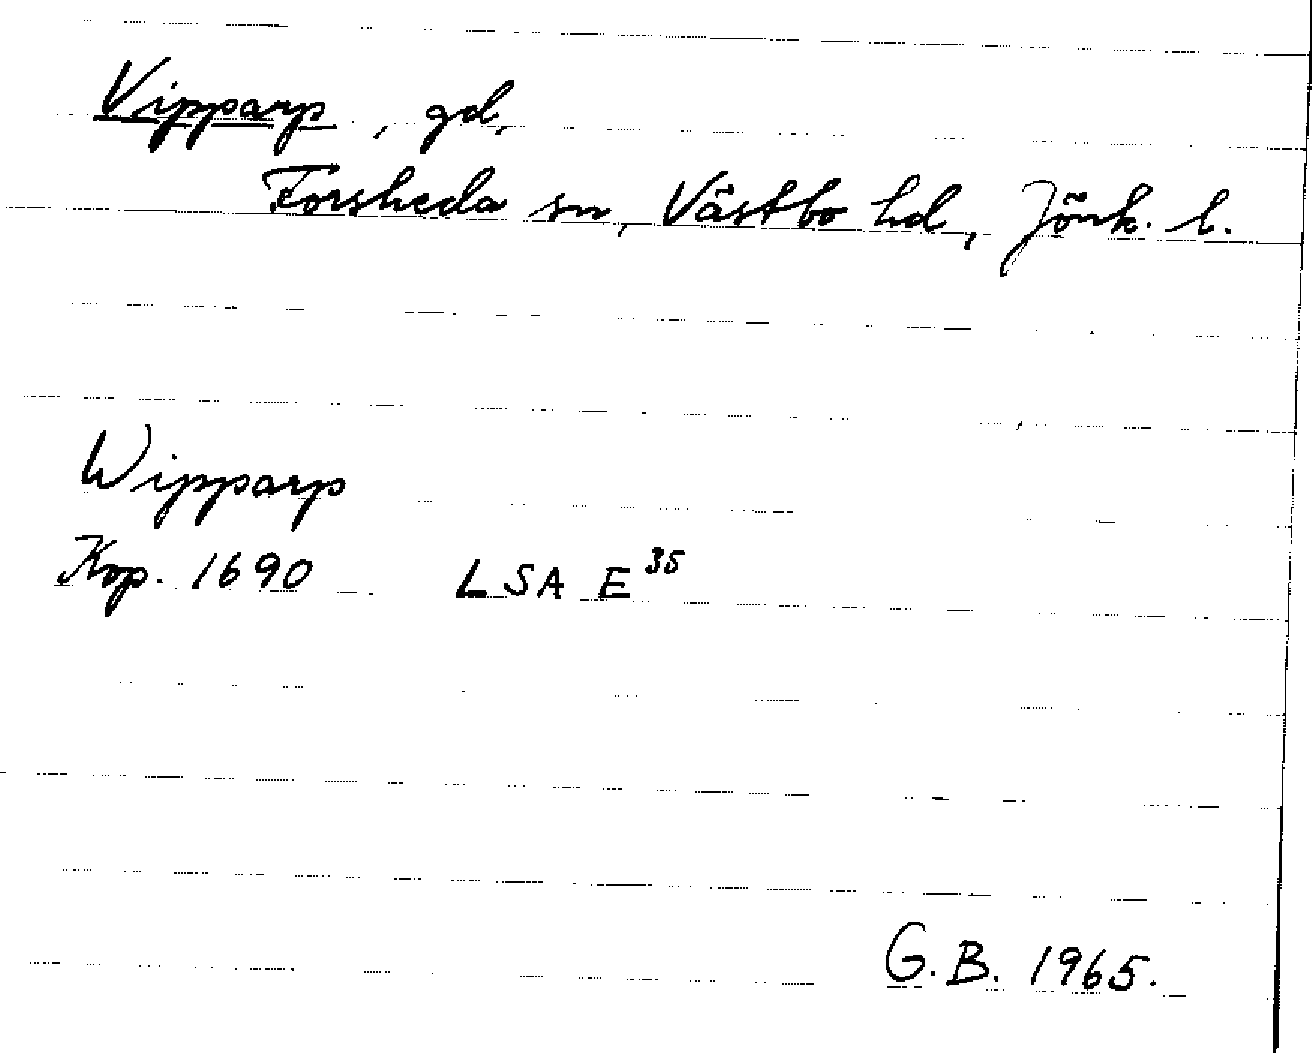 Vipparp, gd,
Forsheda sn, Västbo hd, Jönk. l.
Wipparp
Kop. 1690 LSA E 35
G.B. 1965.